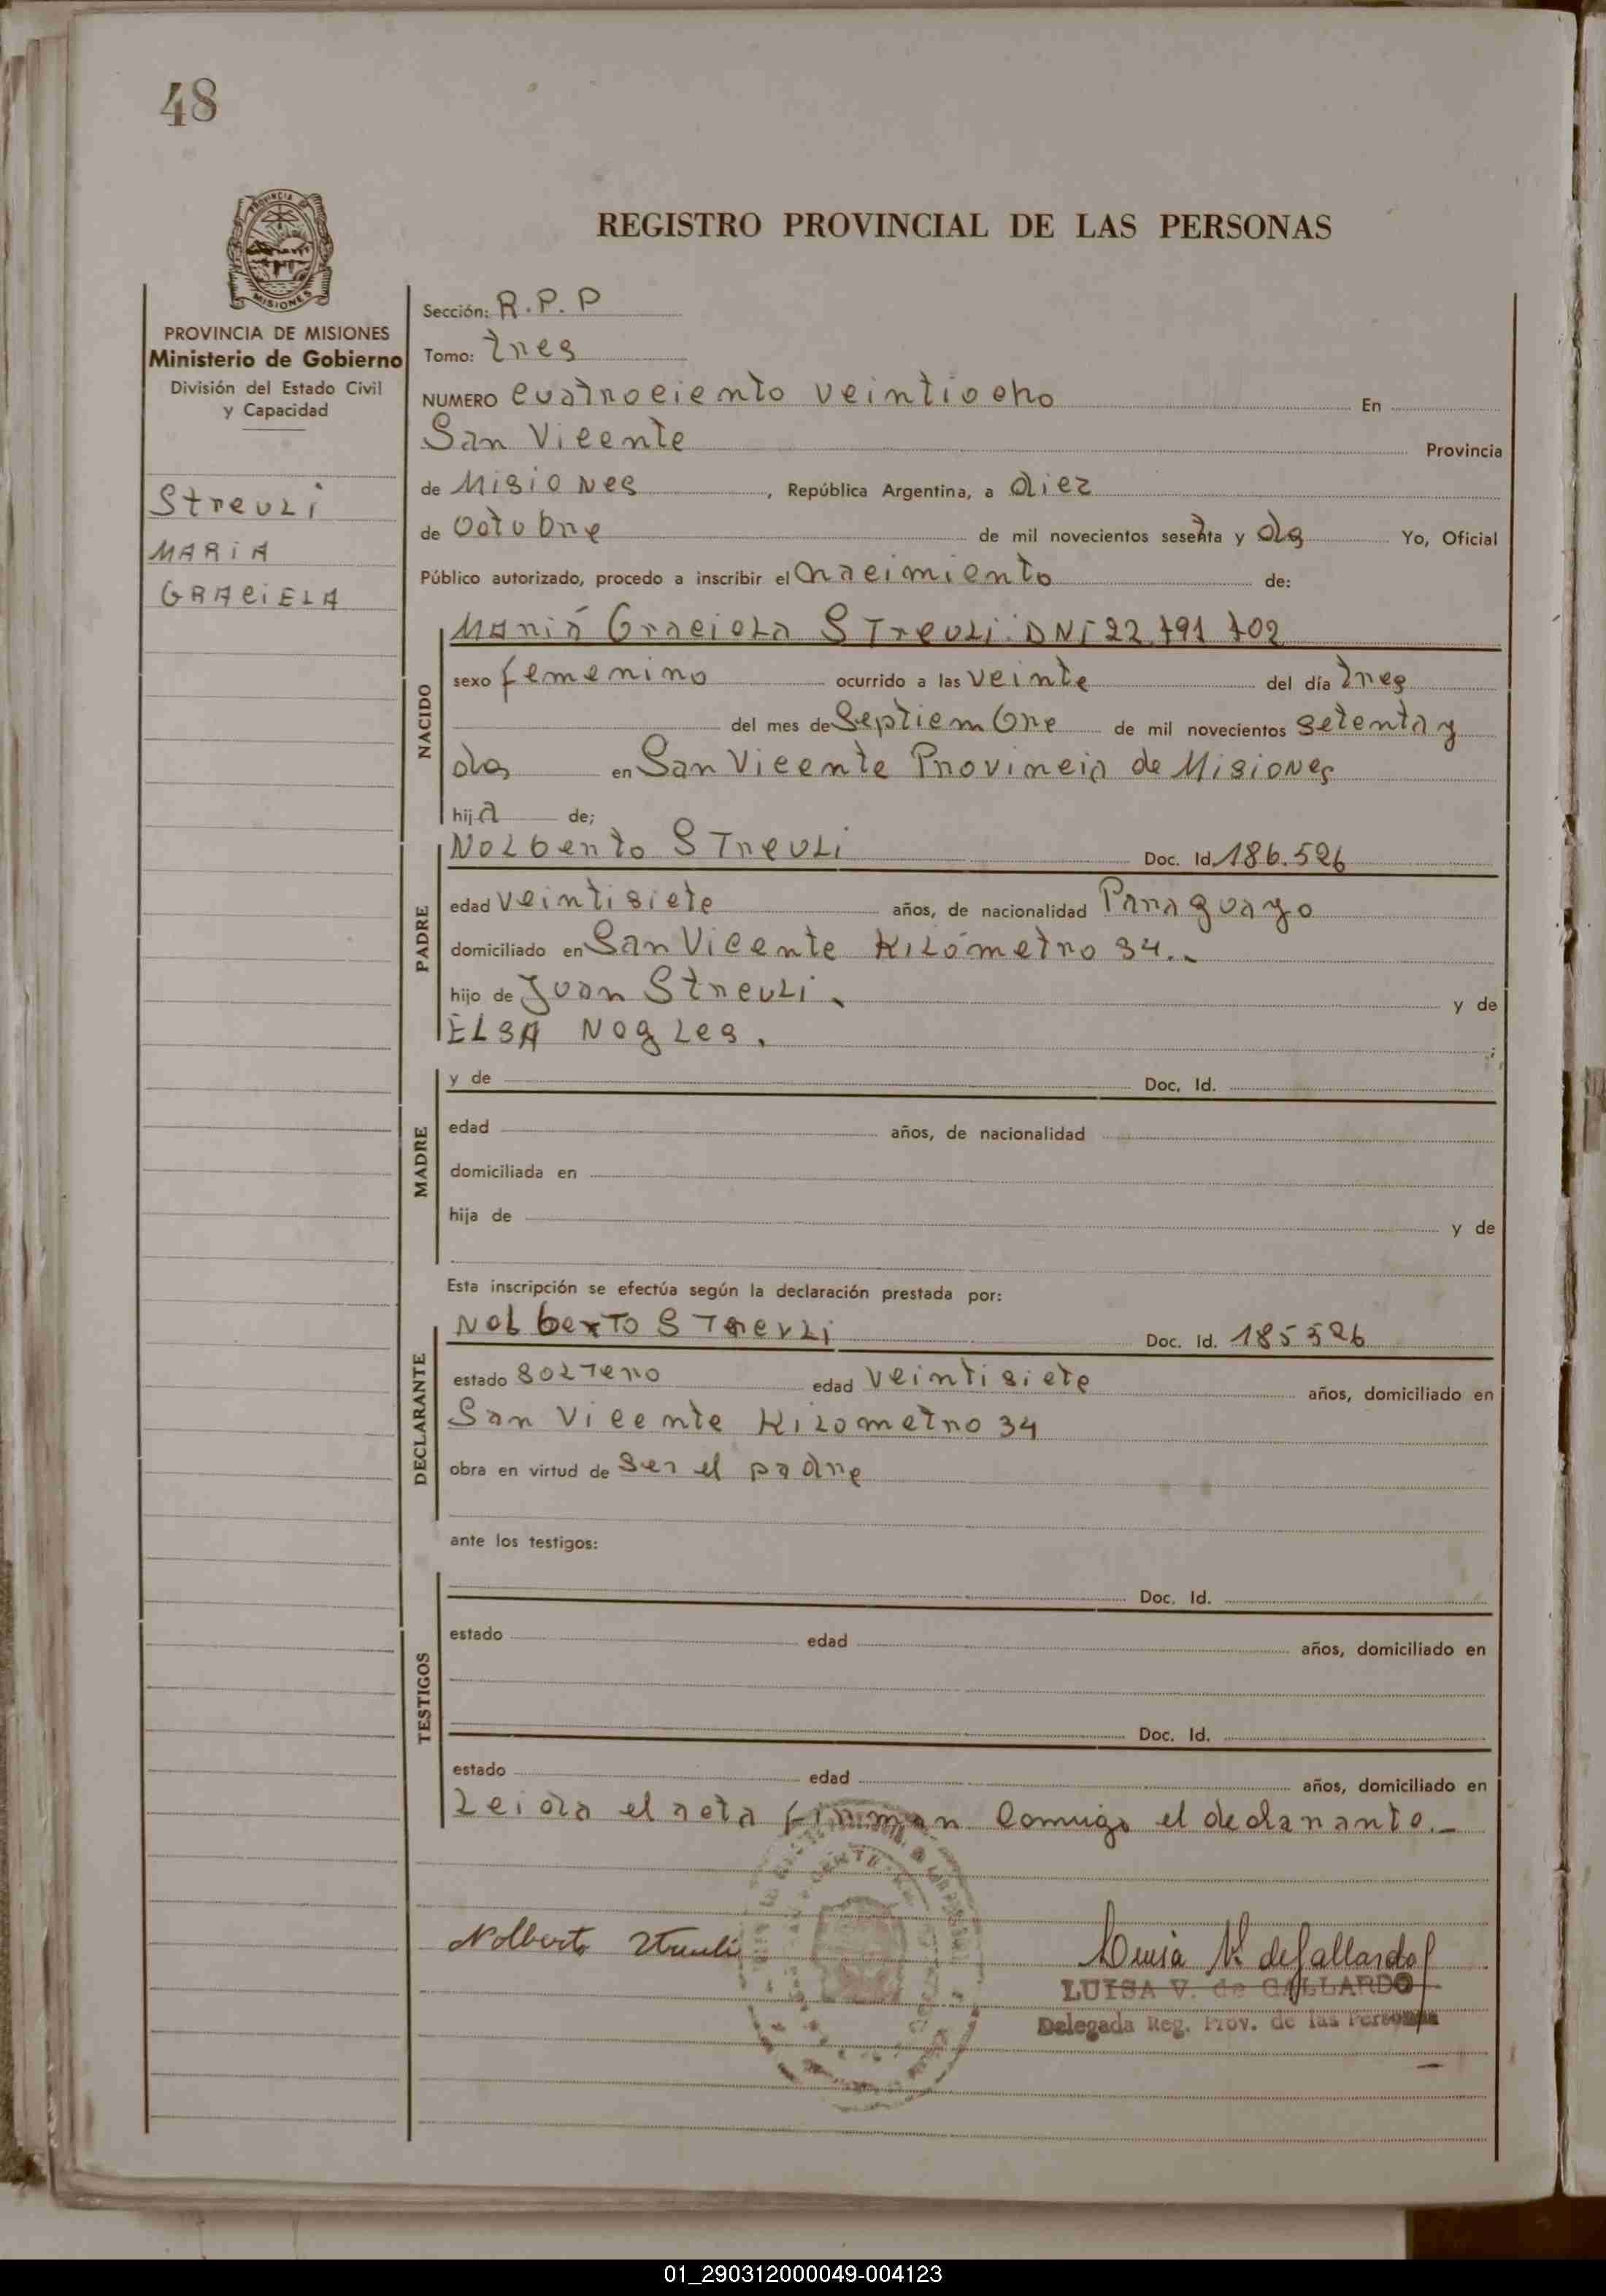 48
REGISTRO PROVINCIAL DE LAS PERSONAS
PROVINCIA DE MISIONES
Ministerio de Gobierno
División del Estado Civil
y Capacidad
Streuli
MARIA
GRACIELA
Sección: R.P.P
Tomo: tres
NUMERO cuatrociento veintiocho En
San Vicente Provincia
de Misiones, República Argentina, a diez
de octubre de mil novecientos setenta y dos Yo, Oficial
Público autorizado, procedo a inscribir el nacimiento de:
NACIDO
María Graciela Streuli. DNI 22.791.702
sexo femenino ocurrido a las veinte del día tres
del mes de Septiembre de mil novecientos setenta y
dos en San Vicente Provincia de Misiones
hija de;
PADRE
Nolberto Streuli Doc. Id. 186.526
edad veintisiete años, de nacionalidad Paraguayo
domiciliado en San Vicente Kilómetro 34.
hijo de Juan Streuli. y de
ELSA Nogles.
MADRE
y de Doc. Id.
edad años, de nacionalidad
domiciliada en
hija de y de
Esta inscripción se efectúa según la declaración prestada por:
DECLARANTE
Nolberto Streuli Doc. Id. 185526
estado soltero edad veintisiete años, domiciliado en
San Vicente Kilometro 34
obra en virtud de ser el padre
ante los testigos:
TESTIGOS
Doc. Id.
estado edad años, domiciliado en
Doc. Id.
estado edad años, domiciliado en
Leida el acta firman conmigo el declarante.-
Nolberto Struuli
Luisa V. de Gallardo
LUISA V. de GALLARDO
Delegada Reg. Prov. de las Personas
01_290312000049-004123